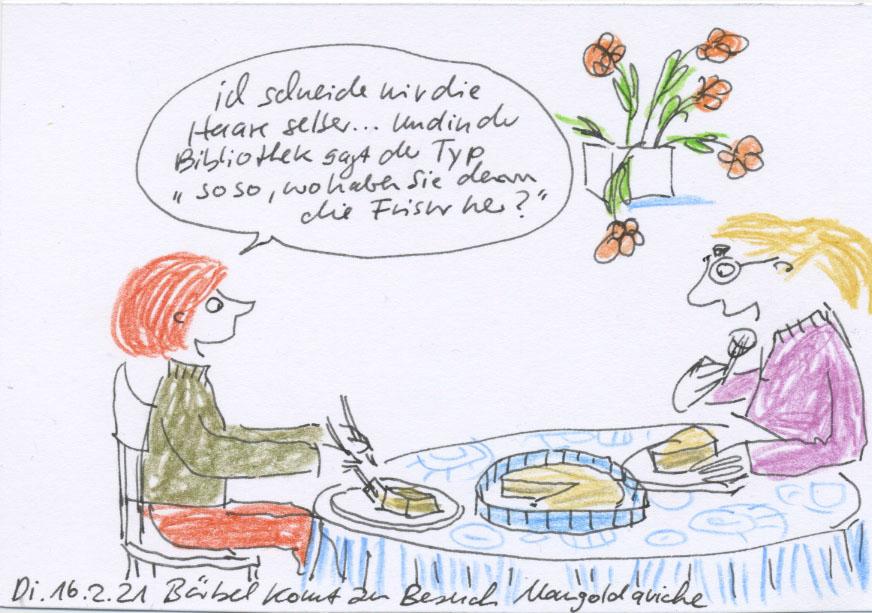 ich schneide mir die
Haare selber... und in der
Bibliothek sagt der Typ
"soso, wo haben Sie denn
die Frisur her?"
Di. 16.2.21 Bärbel komt zu Besuch Mangoldquiche